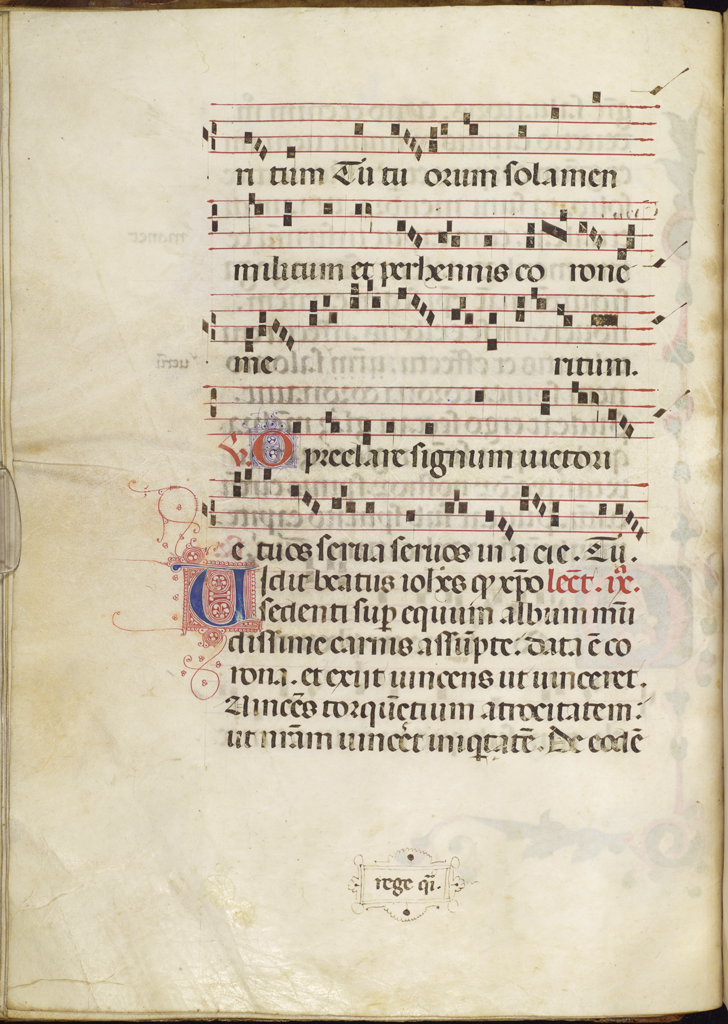 ri tum Tu tu orum solamen
militum et perhennis co rone
me ritum.
V. O preclare signum uictori
e tuos serua seruos in a cie. Tu.
Uidit beatus ioħes qͥ xp̄o lect̄. ixͣ.
sedenti sup equum album mūī
dissime carnis assūpte. data ē co
rona. et exijt uincens ut uinceret.
Uincēs torquētium atrocitatem:
ut nr̄am uincēt iniqͥtatē. De eodē
rege qͥ.